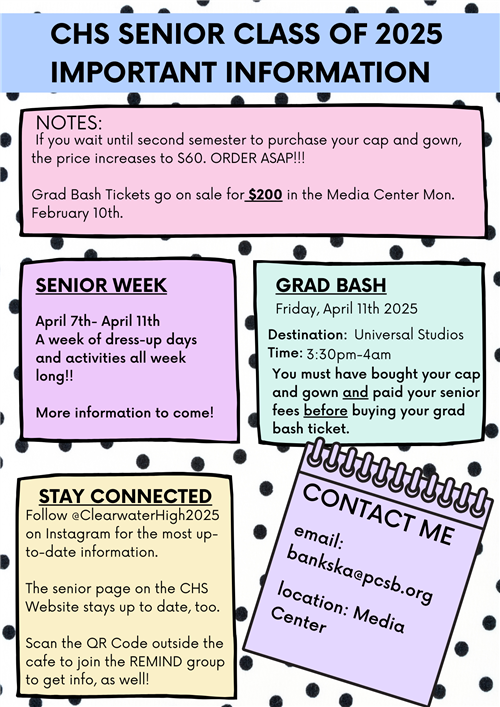 CHS SENIOR CLASS OF 2025
IMPORTANT INFORMATION
NOTES:
If you wait until second semester to purchase your cap and gown,
the price increases to $60. ORDER ASAP!!!
Grad Bash Tickets go on sale for $200 in the Media Center Mon.
February 10th.
SENIOR WEEK
April 7th- April 11th
A week of dress-up days
and activities all week
long!!
More information to come!
GRAD BASH
Friday, April 11th 2025
Destination: Universal Studios
Time: 3:30pm-4am
You must have bought your cap
and gown and paid your senior
fees before buying your grad
bash ticket.
STAY CONNECTED
Follow @ClearwaterHigh2025
on Instagram for the most up-
to-date information.
The senior page on the CHS
Website stays up to date, too.
Scan the QR Code outside the
cafe to join the REMIND group
to get info, as well!
CONTACT ME
email:
bankska@pcsb.org
location: Media
Center